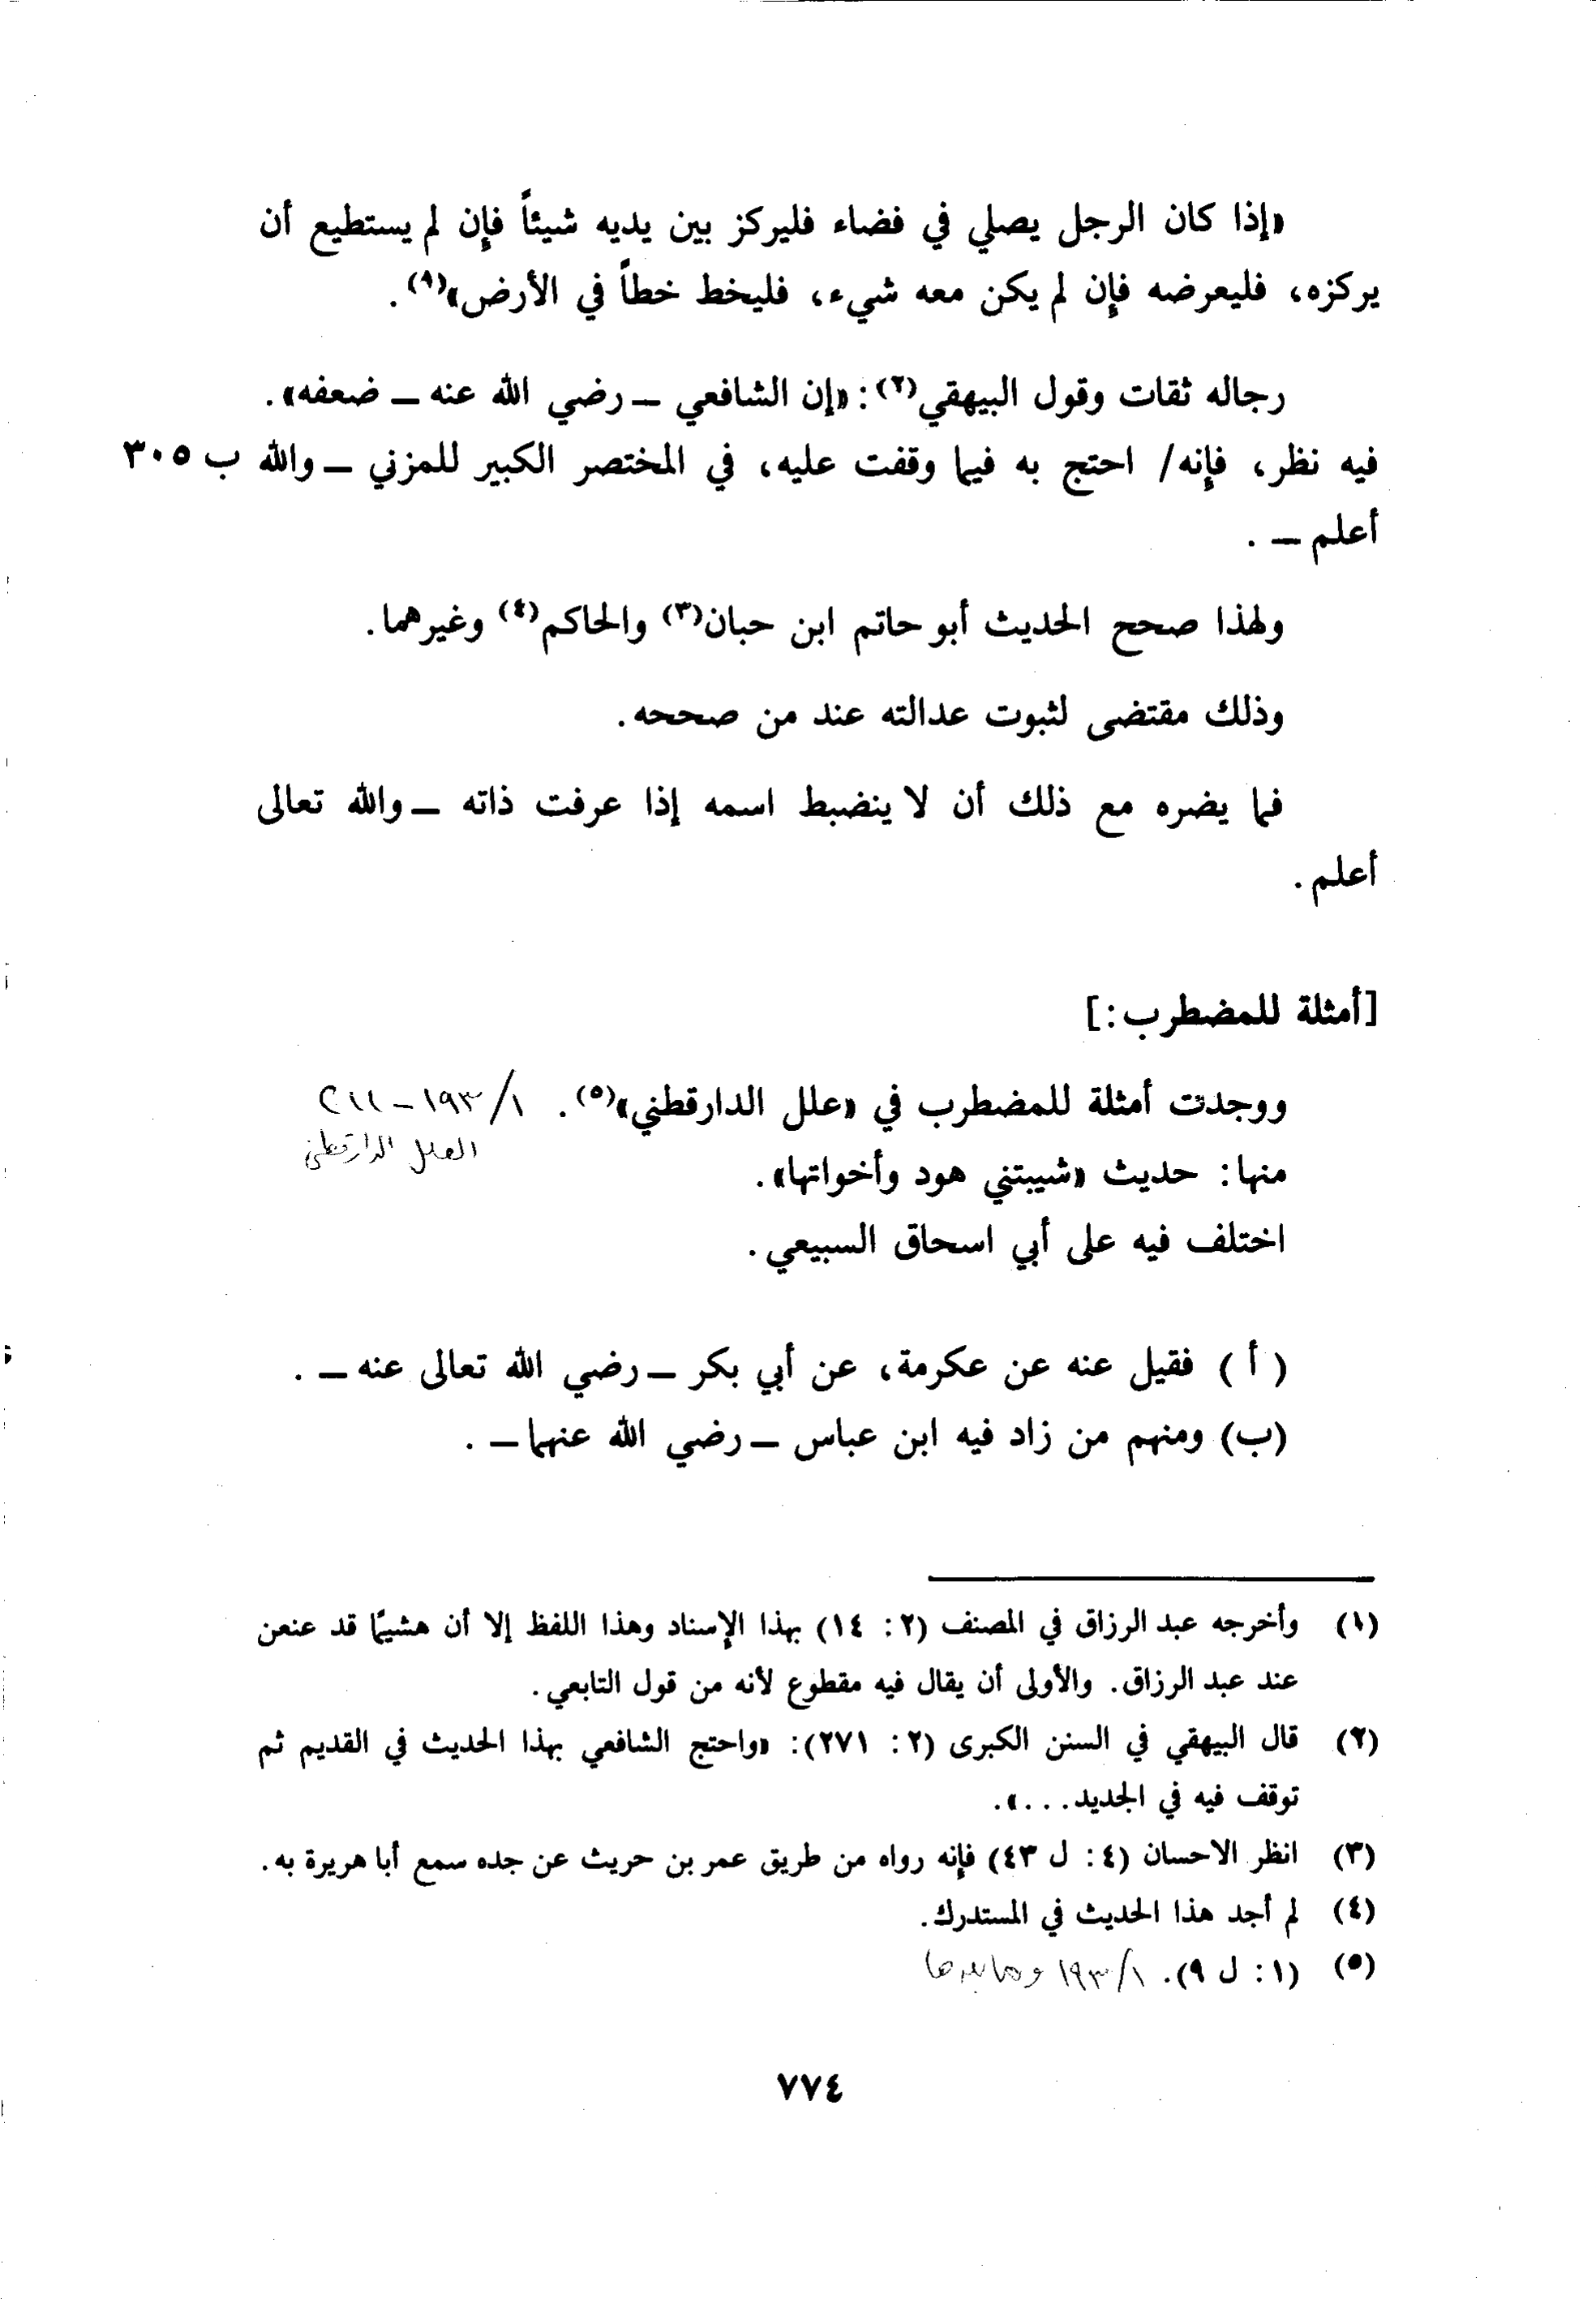 «إذا كان الرجل يصلي في فضاء فليركز بين يديه شيئاً فإن لم يستطيع أن
يركزه، فليعرضه فإن لم يكن معه شيء، فليخط خطاً في الأرض»(١).
رجاله ثقات وقول البيهقي(٢): «إن الشافعي – رضي الله عنه – ضعفه».
فيه نظر، فإنه/ احتج به فيما وقفت عليه، في المختصر الكبير للمزني – والله ب ٣٠٥
أعلم – .
ولهذا صحح الحديث أبو حاتم ابن حبان(٣) والحاكم(٤) وغيرهما.
وذلك مقتضى لثبوت عدالته عند من صححه.
فما يضره مع ذلك أن لا ينضبط اسمه إذا عرفت ذاته – والله تعالى
أعلم.
[أمثلة للمضطرب:]
ووجدت أمثلة للمضطرب في «علل الدارقطني»(٥). ١/١٩٣ – ٢١١
العلل الدارقطني
منها: حديث «شيبتني هود وأخواتها».
اختلف فيه على أبي اسحاق السبيعي.
( أ ) فقيل عنه عن عكرمة، عن أبي بكر – رضي الله تعالى عنه – .
(ب) ومنهم من زاد فيه ابن عباس – رضي الله عنهما – .
(١) وأخرجه عبد الرزاق في المصنف (٢ : ١٤) بهذا الإسناد وهذا اللفظ إلا أن هشيمًا قد عنعن
عند عبد الرزاق. والأولى أن يقال فيه مقطوع لأنه من قول التابعي.
(٢) قال البيهقي في السنن الكبرى (٢ : ٢٧١): «واحتج الشافعي بهذا الحديث في القديم ثم
توقف فيه في الجديد...».
(٣) انظر الاحسان (٤ : ل ٤٣) فإنه رواه من طريق عمر بن حريث عن جده سمع أبا هريرة به.
(٤) لم أجد هذا الحديث في المستدرك.
(٥) (١ : ل ٩). ١/١٩٣ وما بعدها
٧٧٤